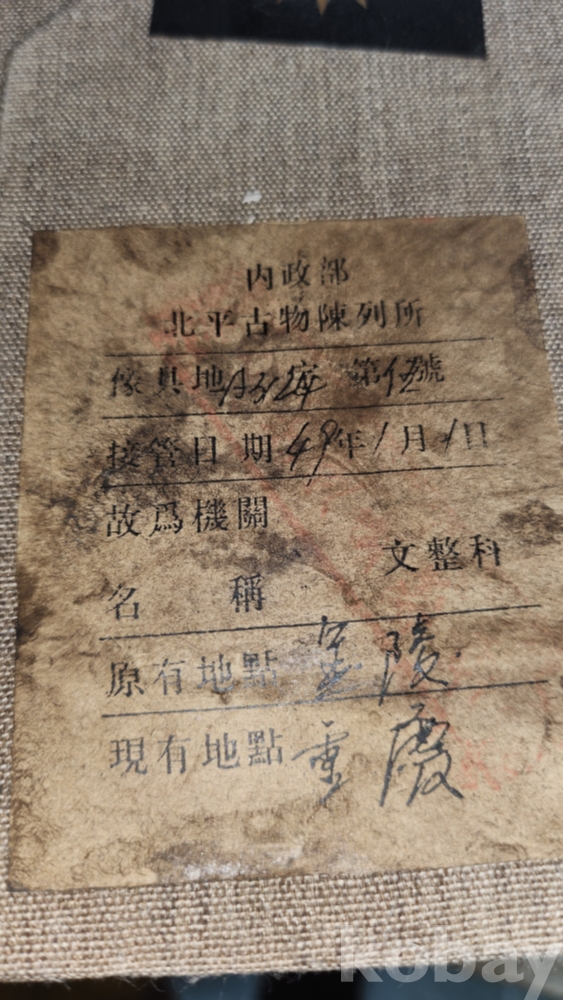 内政部
北平古物陳列所
傢具地 第伍號
接管日期49年1月1日
故爲機關
文整科
名稱
原有地點 定陵
現有地點 重慶
kobay